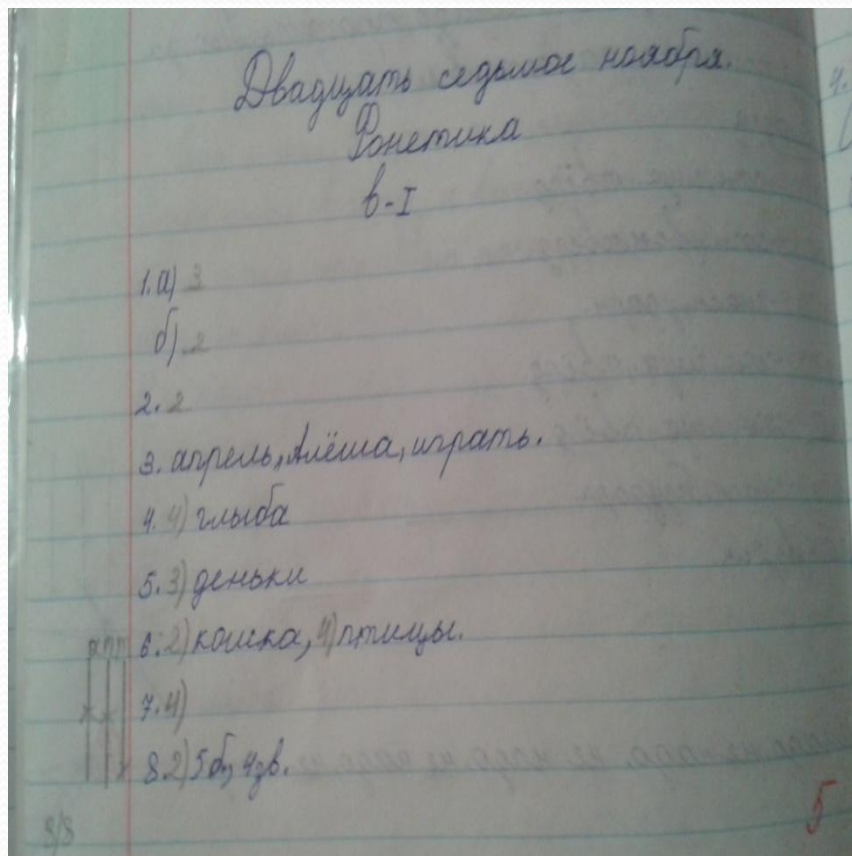 Двадцать седьмое ноября.
Фонетика
в-I
1. а) 3
б) 2
2. 2
3. апрель, Алёша, играть.
4. 4) глыба
5. 3) деньки
6. 2) кошка, 4) птицы.
7. 4)
8. 2) 5 б, 4 зв.
8/8
5